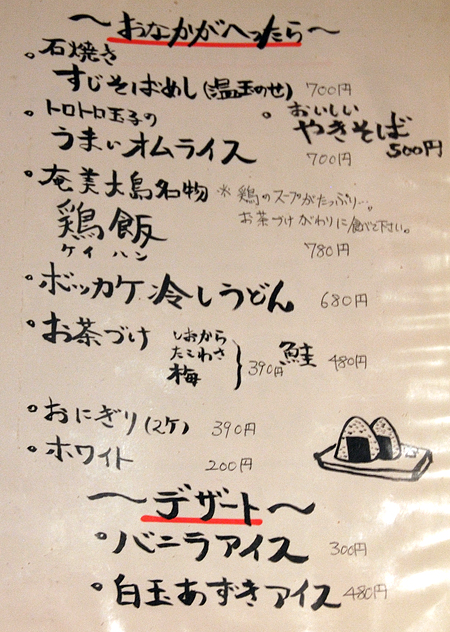 〜おなかがへったら〜
。石焼き
すじそばめし(温玉のせ) 700円
。トロトロ玉子の
うまぃオムライス 700円
。おいしい
やきそば
500円
。奄美大島名物
鶏飯
ケイハン
※鶏のスープがたっぷり…。
お茶づけがわりに食べて下さい。
780円
。ボッカケ冷しうどん 680円
。お茶づけ
しおから
たこわさ
梅
390円
鮭 480円
。おにぎり(2ケ) 390円
。ホワイト 200円
〜デザート〜
。バニラアイス 300円
。白玉あずきアイス 480円